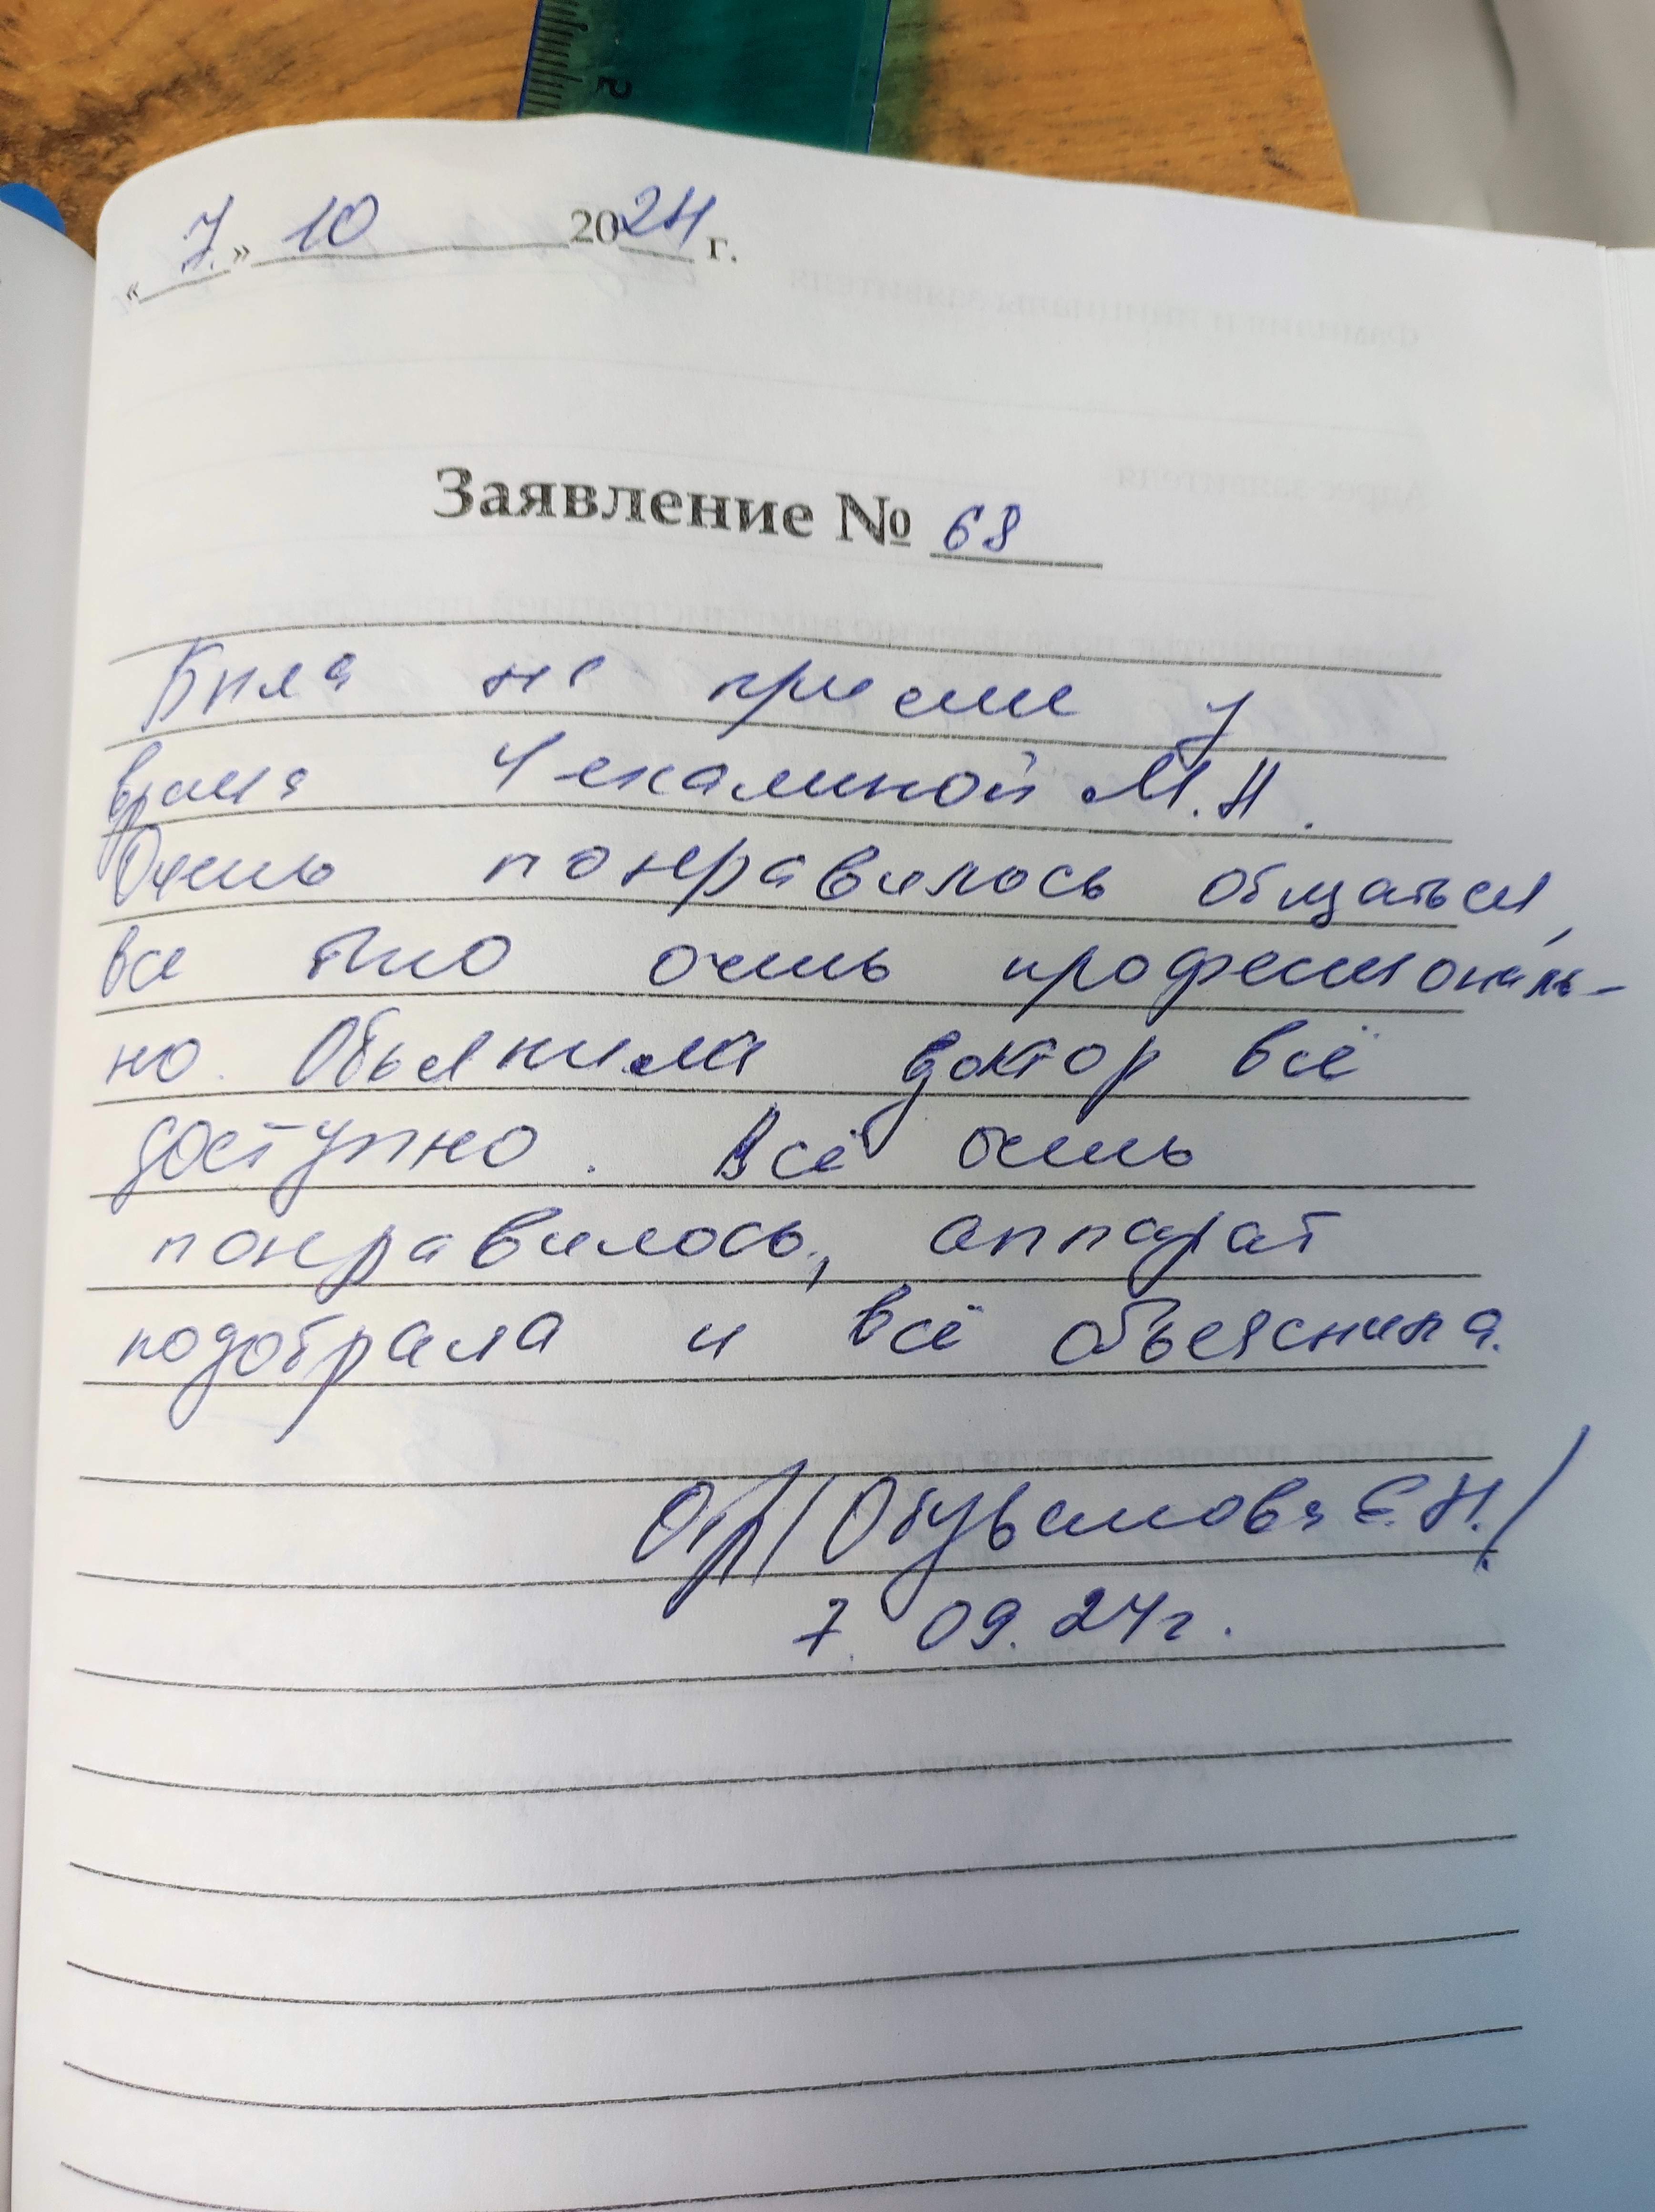 « 7. » 10 2024 г.
Заявление № 68
Была на приеме у
врача Чекалиной М.Н.
Очень понравилось общаться,
все было очень професиональ-
но. Обьяснила доктор всё
доступно. Всё очень
понравилось, аппарат
подобрала и всё обьеяснила.
/Обувалова Е.Н./
7. 09. 24г.